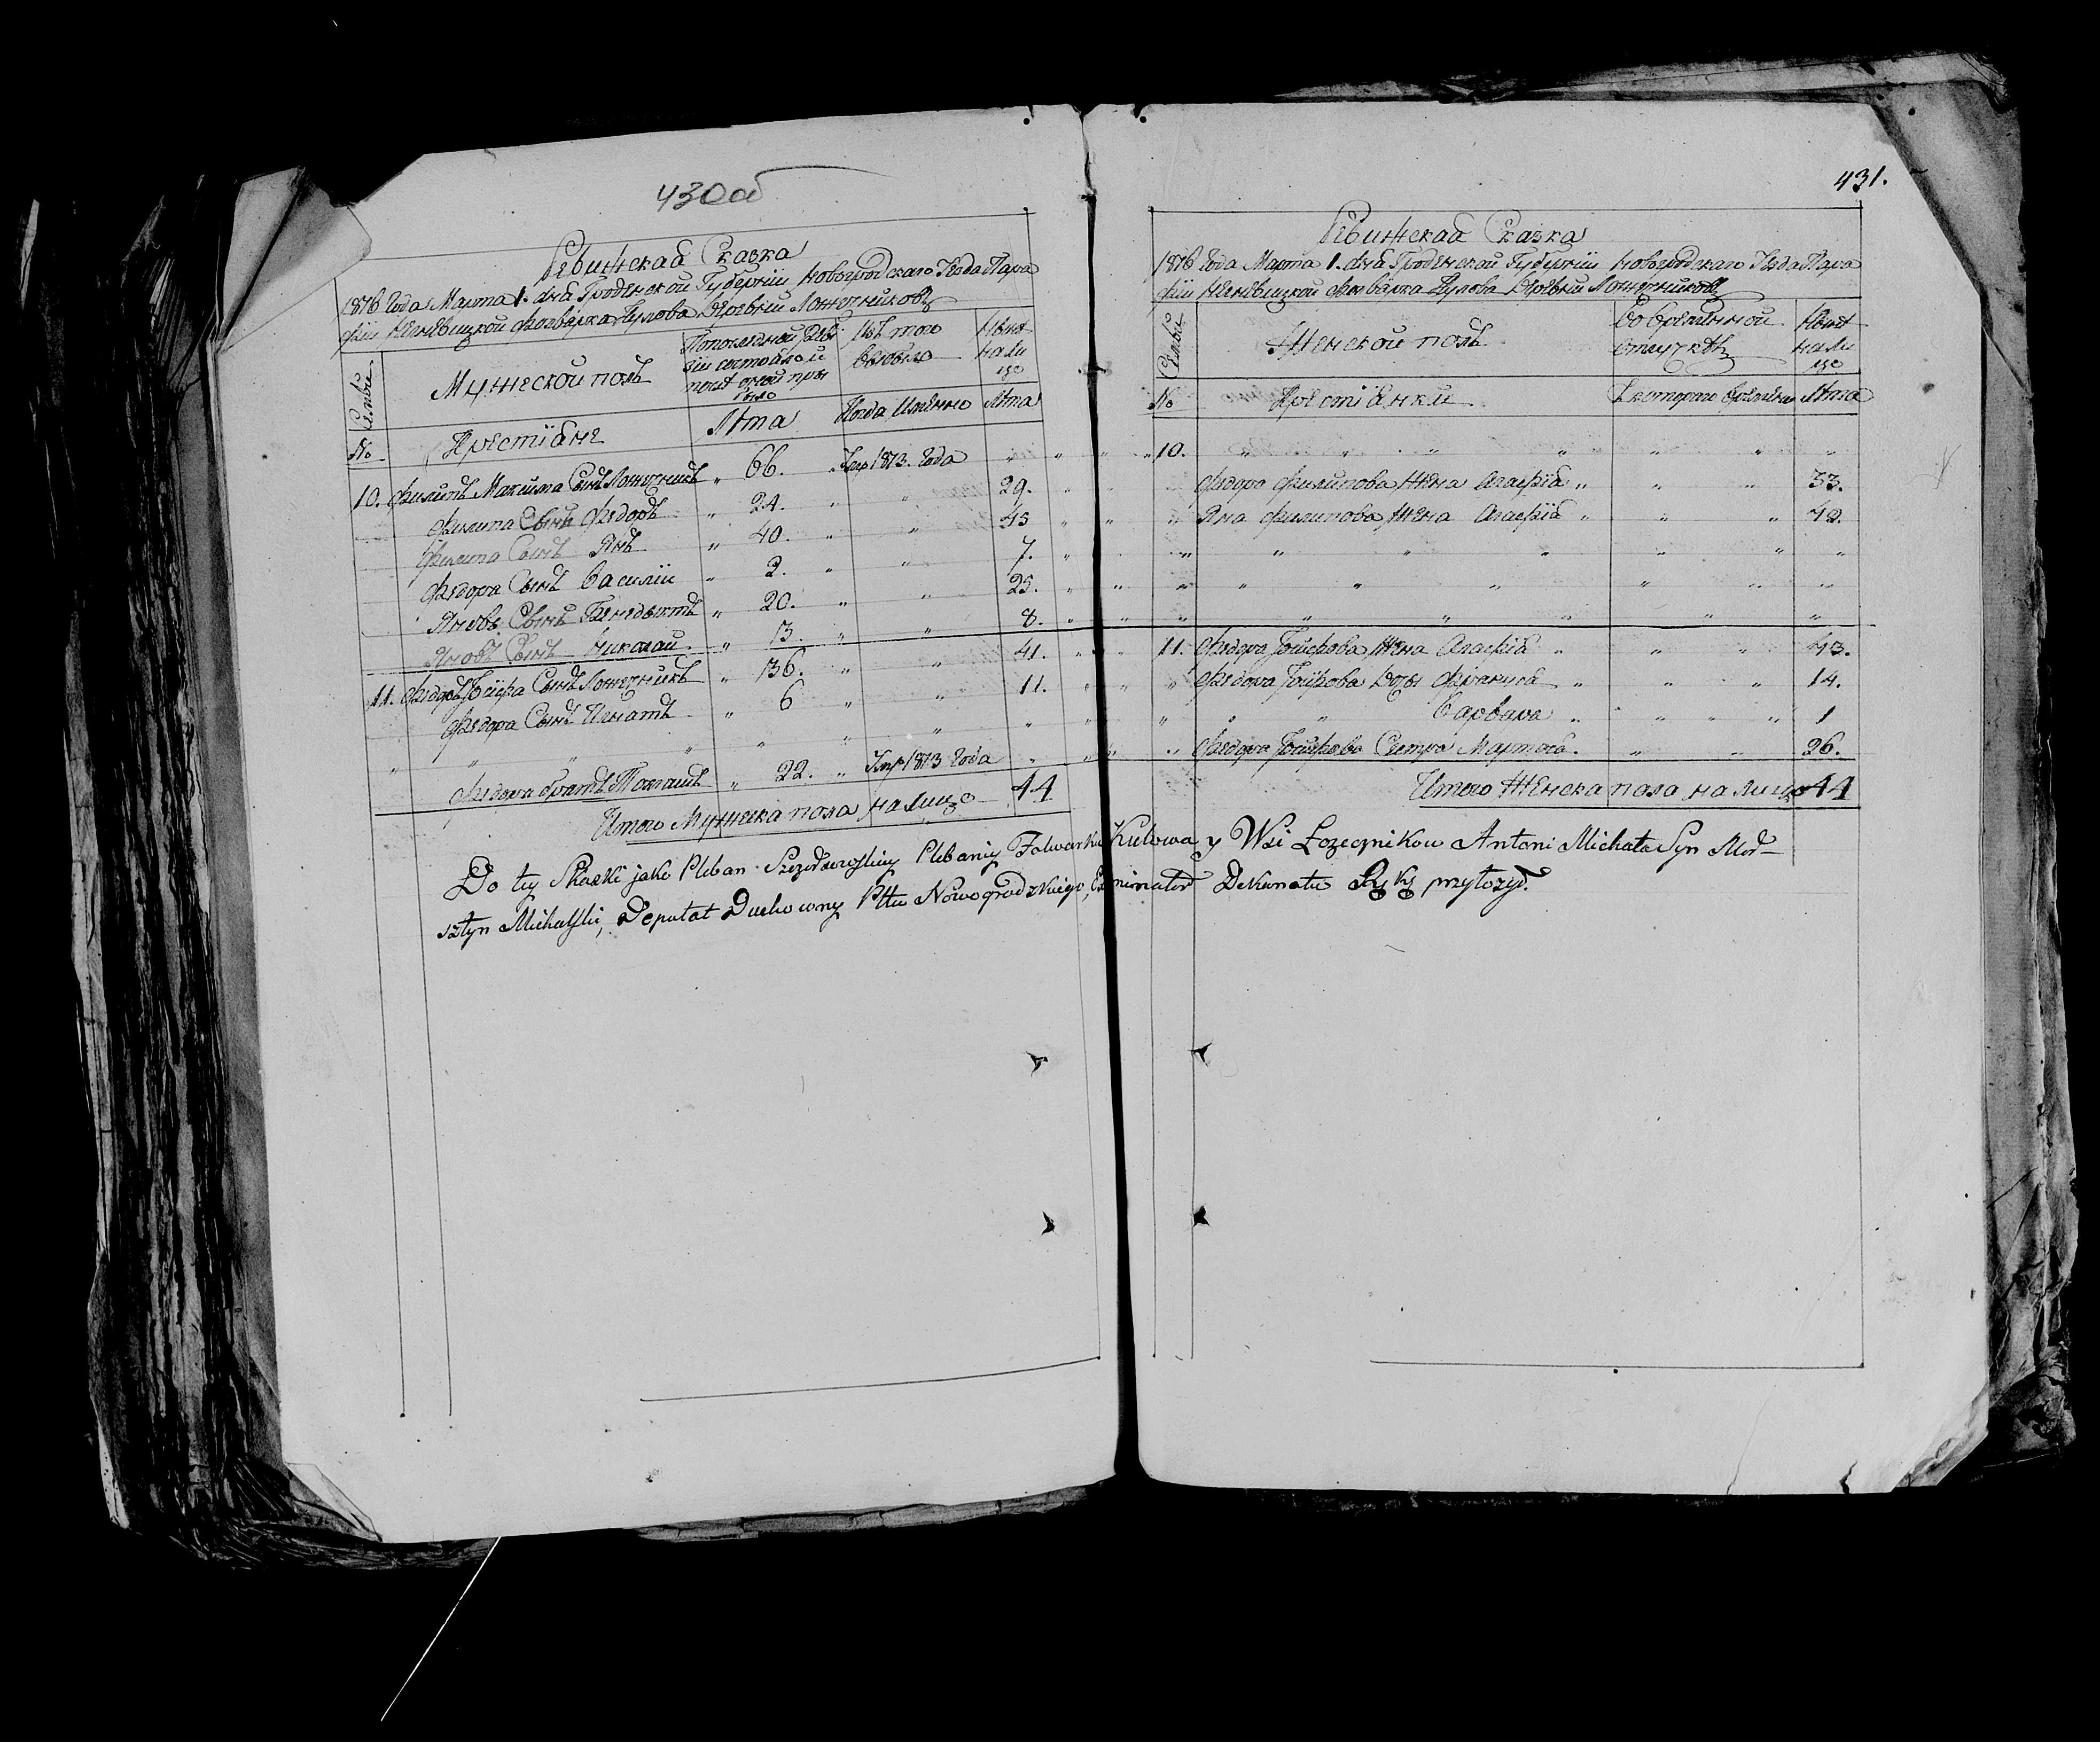 430об
Ревижская Сказка
1816 Года Марта 1. дня Гроденской Губернiи Новогродскаго Уезда Пара
фiи Негневицкой Фольварка Кулова Деревни Ложечников
Семьи
Мужеской полъ
По последной Реви
зiи состояло и
после оной при
было
Изъ того
выбыло
Ныне
на ли
цо
№
Крестiяне
Лета
Когда Именно
Лета
10. Филипъ Максима Сынъ Ложечникъ " 66. Умер 1813. Года "
Филипа Сынъ Федоръ " 24. " " 29.
Филипа Сынъ Янъ " 40. " " 45
Федора Сынъ Василiи " 2. " " 7.
Яновъ Сынъ Бенедыктъ " 20. " " 25.
Яновъ Сынъ Николай " 3. " " 8.
11. Федоръ Iосифа Сынъ Ложечникъ " 36. " " 41.
Федора Сынъ Игнатъ " 6 " " 11.
" " " " " " " "
Федора братъ Томашъ " 22. " Умер 1813 Года "
Итого Мужеска пола на лицо 14
431.
Ревижская Сказка
1816 Года Марта 1. дня Гроденской Губернiи Новогродскаго Уезда Пара
фiи Негневицкой Фольварка Кулова Деревни Ложечников
Семьи
Женской полъ
Во временной
отлучке
Ныне
на ли
цо
№
Крестiянки
С котораго времени
Лета
10. " " " " " " "
Федора Филипова Жена Агафiя " " " 33.
Яна Филипова Жена Агафiя " " " 42.
" " " " " " "
" " " " " " "
" " " " " "
11. Федора Iосифова Жена Агафiя " " " 43.
Федора Iосифова Дочь " " " 14.
" " Варвара " " " 1
Федора Iосифова Сестра Марта " " 26.
Итого Женска пола на лицо 14
Do tey Skazki jako Pleban Plebanij Folwarku Kulowa y Wsi Łozecznikow Antoni Michała Syn
Michalski, Deputat Duchowny Pttu Nowogrodzkiego, Dekanatu Rękę przyłozył.